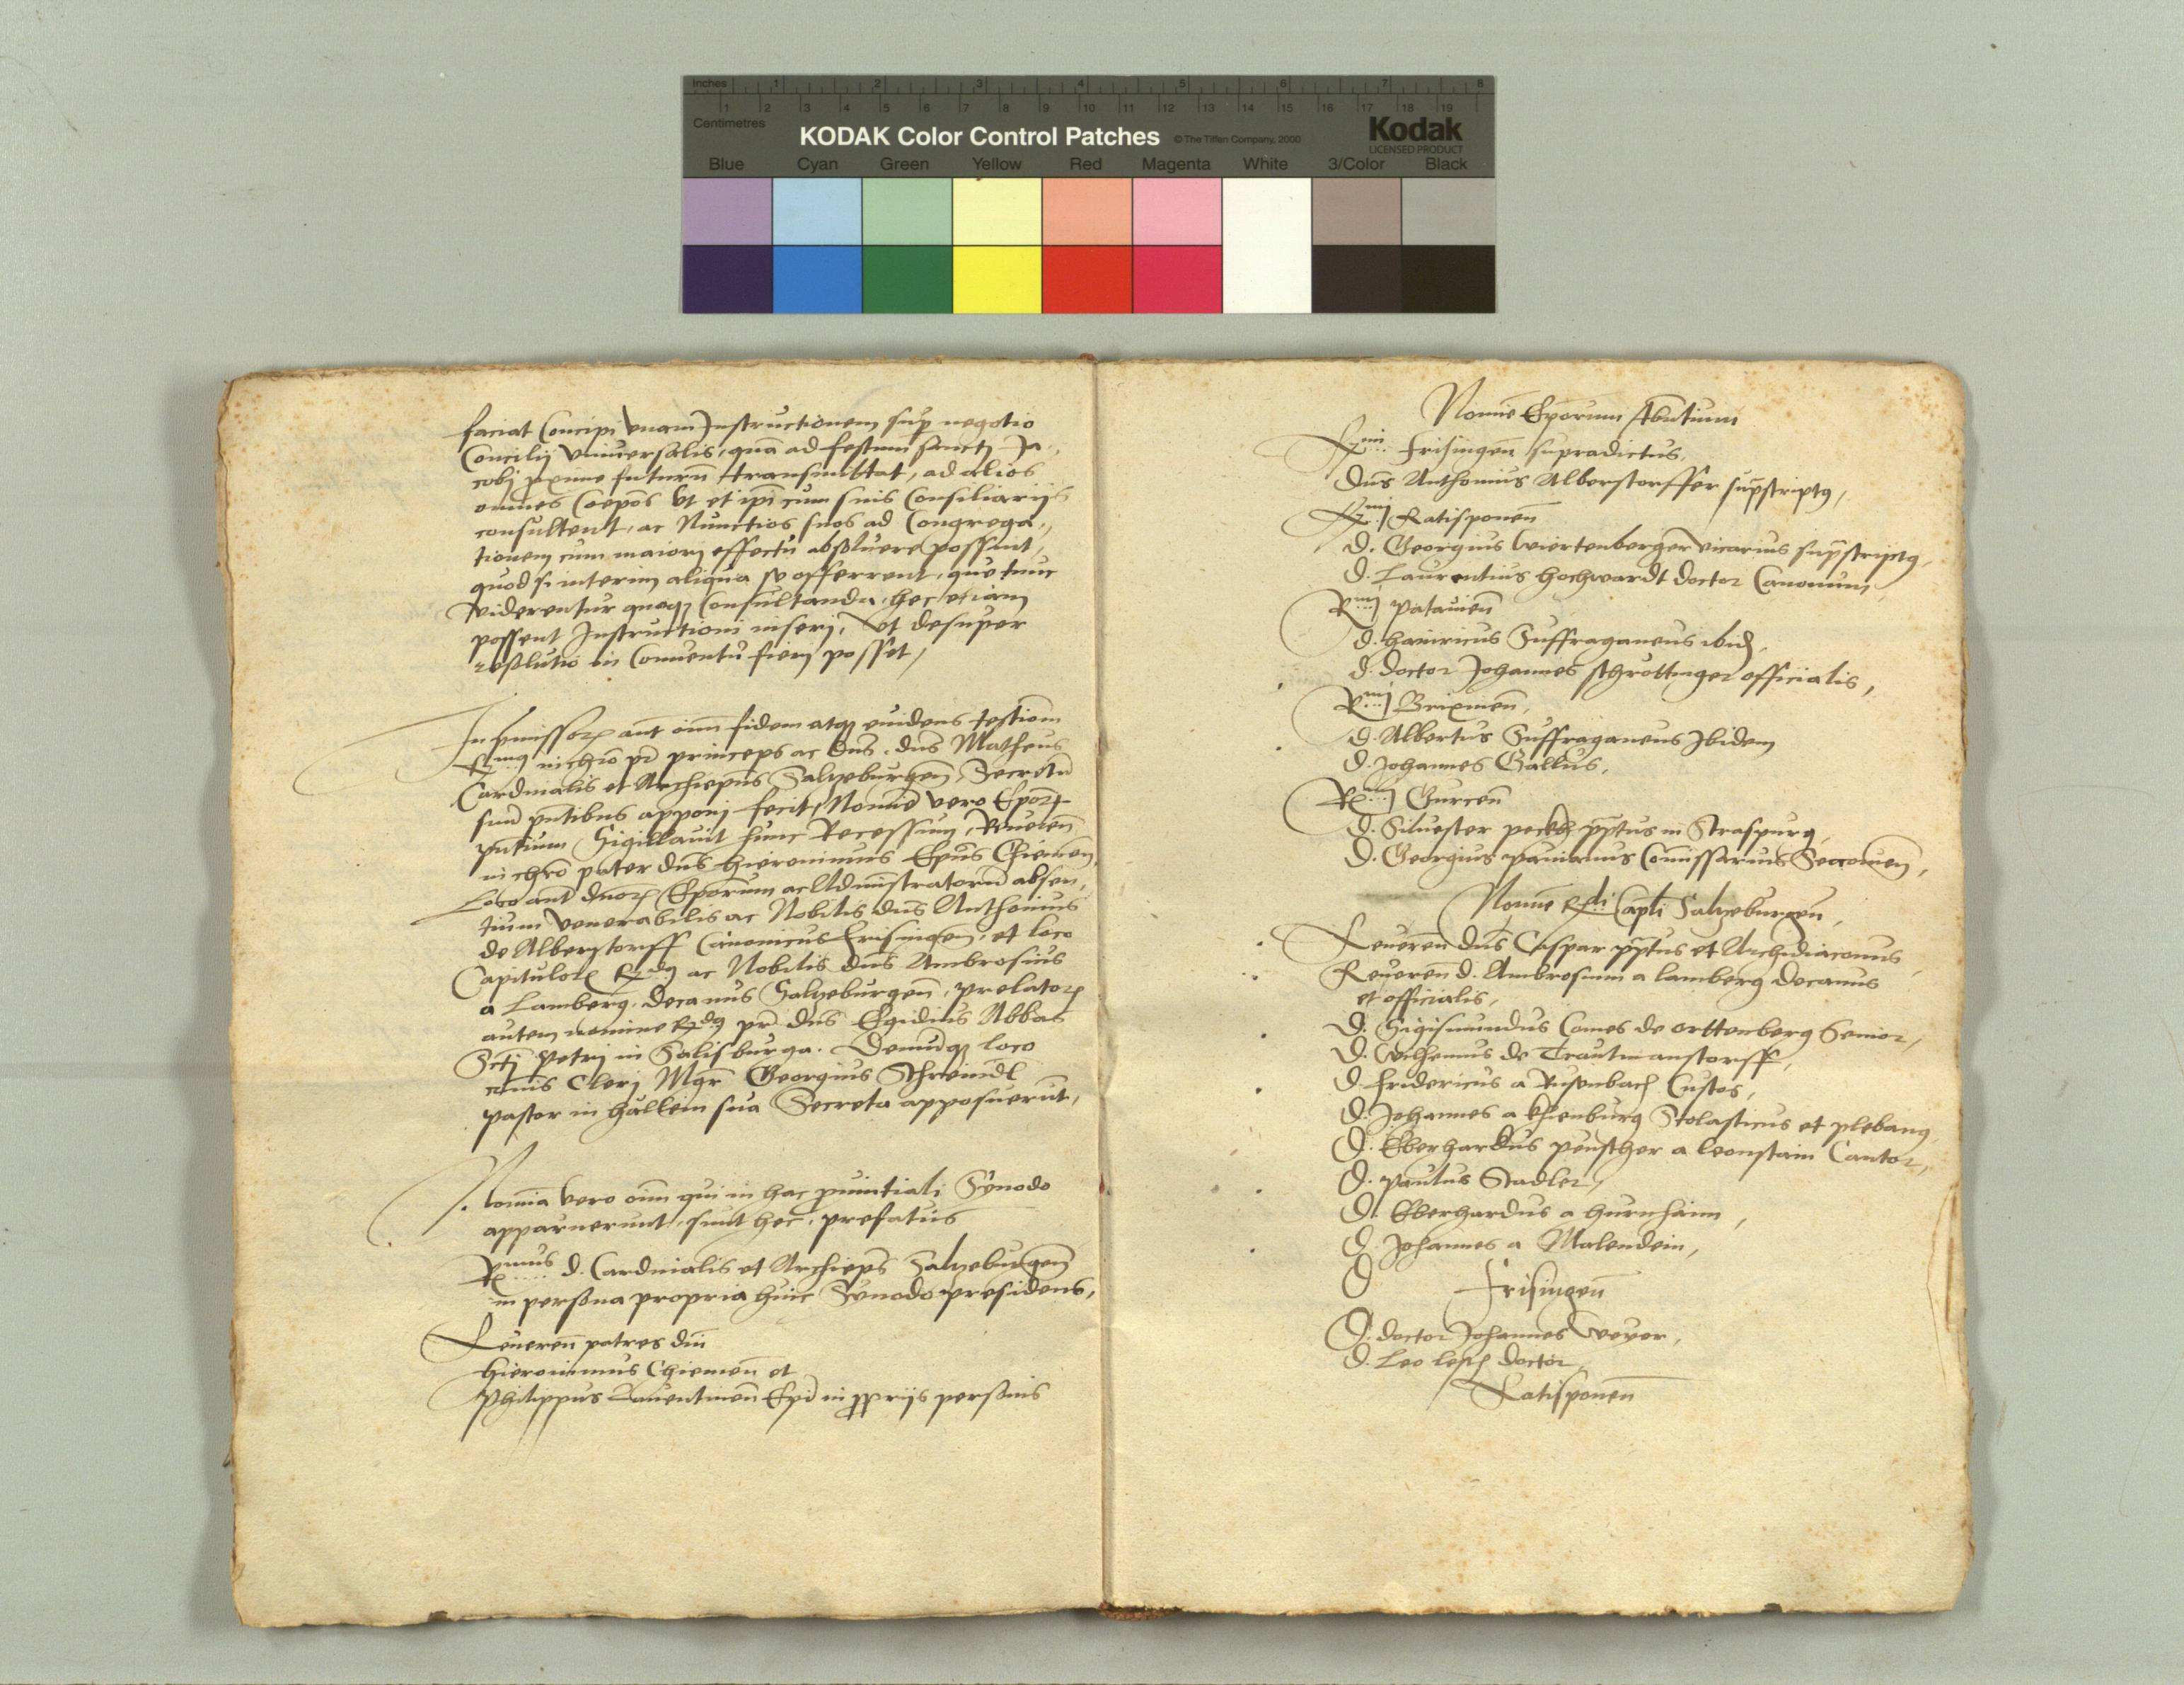 Inches 1 2 3 4 5 6 7 8
1 2 3 4 5 6 7 8 9 10 11 12 13 14 15 16 17 18 19
Centimetres
KODAK Color Control Patches © The Tiffen Company, 2000 Kodak
LICENSED PRODUCT
Blue Cyan Green Yellow Red Magenta White 3/Color Black
faciat Concipi vnam Instructionem sup negotio
Concilij Vniuersalis, quā ad festum sancti Ja,,
cobj pxime futurū transmittat, ad alios
omnes Coepōs vt et ipī cum suis Consiliarijs
consultent, ac Nunctios suos ad Congrega,,
tionem cum maiorj effectu absoluere possint,
quod si interim aliqua se offerrent, que tunc
viderentur quoqȝ Consultanda, hec etiam
possent Instructioni inserj, Vt desuper
resolutio in Conuentu fierj posset,
In pmissoꝝ aut oīm fidem atqȝ euidens testiom
in chrō pr princeps ac dn̄s. dn̄s Matheus
Cardinalis et Archiepus Salzeburgen̄, Secretū
suū pn̄tibus apponj fecit, Nomīe vero Epoꝝ
pn̄tium Sigillauit hunc Recessum, Reueren̄
in chrō pater dn̄s Hieronimus Epūs Chiemen̄,
Loco aut dnoꝝ Eporum ac Administratorū absen,,
tium Venerabilis ac Nobilis dn̄s Anthonius
de Alberstorff Canonicus Frisingen̄, et loco
Capituloꝝ Rdg ac Nobilis dn̄s Ambrosius
a Lamberg Decanus Salzeburgen̄, prelatoꝝ
autem nomine Rdg pr dn̄s Egidius Abbas
Sctj Petrj in Salisburga. Demumqȝ loco
Clerj Mgr Georgius Schreindl
pastor in Hallein sua Secreta apposuerūt,
Nomīa vero oīm qui in hac puintiali Sÿnodo
apparuerunt, sunt hec, prefatus
Rmus d. Cardinalis et Archieps Salzeburgen̄
in persona propria huic Synodo presidens,
Reueren̄ patres dn̄i
Hieronimus Chiemen̄ et
Philippus Lauentinen̄ Epi in pprijs personis
Nomīe Eporum Abn̄tium
Rmi Frisingen̄ supradictus,
Dn̄s Anthonius Alberstorffer supscriptg,
Rmj Ratisponen̄
D. Georgius Wiertenberger vicarius supscriptg,
D. Laurentius Hochwardt doctor Canonum,
Rmj Patauien̄
d. Hainricus Suffraganeus ibid,
d. doctor Johannes Schrottinger officialis,
Rmj Brixinen̄,
d. Albertus Suffraganeus Ibidem
D. Johannes Gallus,
Rmj Gurcen̄
d. Siluester peckh pptus in Straspurg,
D. Georgius Comissarius Seccouien̄,
Nomīe Rdi Capli Salzeburgen̄,
Reueren̄ dn̄s Caspar pptus et Archidiaconus,
Reueren̄ d. Ambrosium a Lamberg Decanus
et officialis,
D. Sigismundus Comes de Orttenberg Senior,
D. Wilhemus de Trautmanstorff,
D. Fridericus a Rusenbach Custos,
D. Johannes a Khienburg Scolasticus et plebang
D. Eberhardus peuscher a Leonstain Cantor,
D. Paulus Stadler,
D. Eberhardus a Hurnhaim,
D. Johannes a Malendein,
D Frisingen̄
D. doctor Johannes Weyer,
D. Leo Lesch doctor,
Ratisponen̄